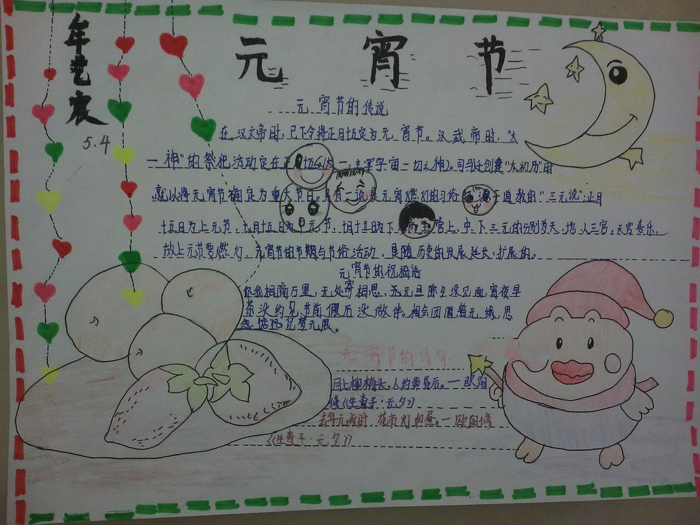 年艺宸
5.4
元宵节
元宵节的传说
在汉文帝时,已下令将正月十五定为元宵节。汉武帝时,"太
一神"的祭祀活动定在正月十五(太一:主宰宇宙一切之神)。司马迁创建"太初历"时
就以将元宵节确定为重大节日。另有一说是元宵燃灯的习俗起源于道教的"三元说";正月
十五日为上元节,七月十五日为中元节,十月十五日为下元节。主管上、中、下三元的分别为天、地、人三官,天官喜乐,
故上元节要燃灯。元宵节的节期与节俗活动,是随历史的发展延长、扩展的。
元宵节的祝福语
你我相隔万里,无处寄相思,
元宵节的诗句
月上柳梢头,人约黄昏后。——欧阳
修《生查子·元夕》
去年元夜时,花市灯如昼。——欧阳修
《生查子·元夕》